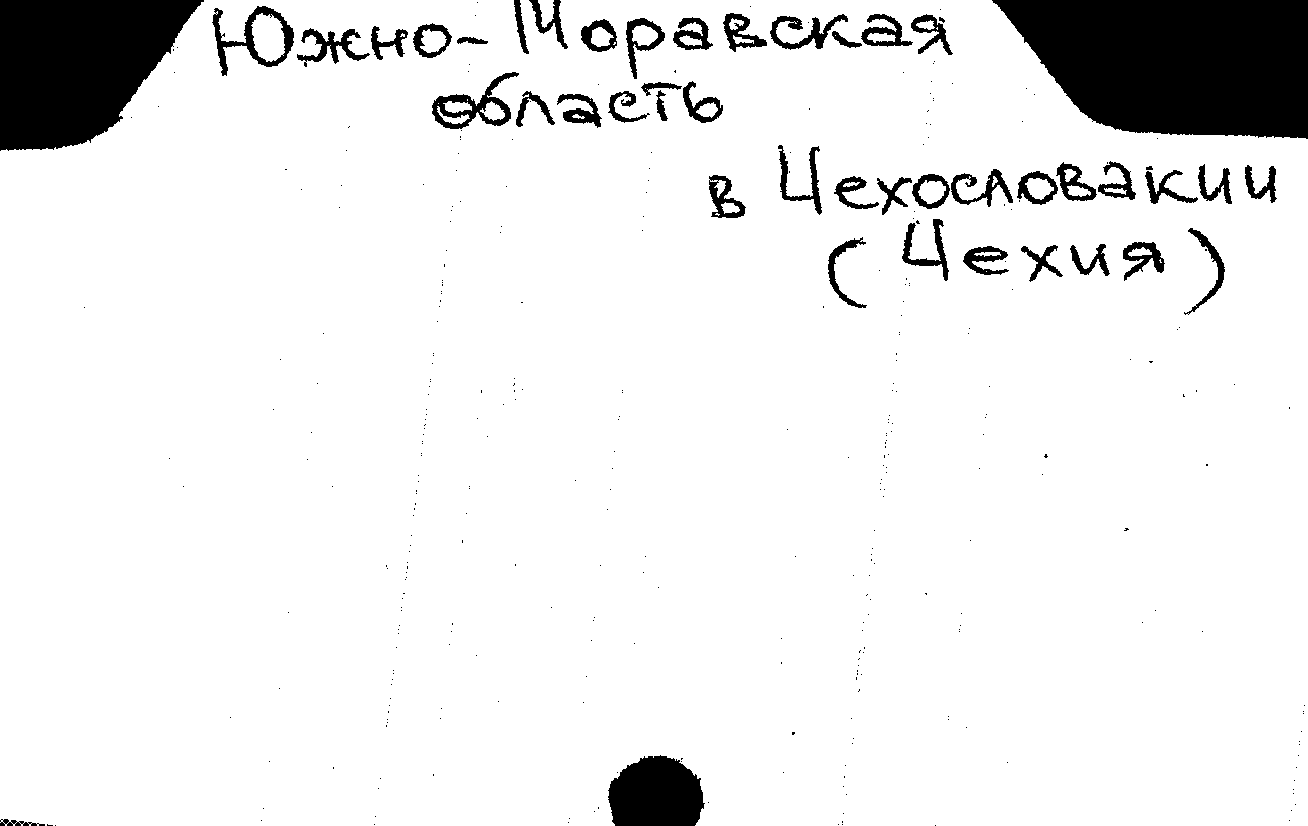 Южно-Моравская
область
в Чехословакии
(Чехия)